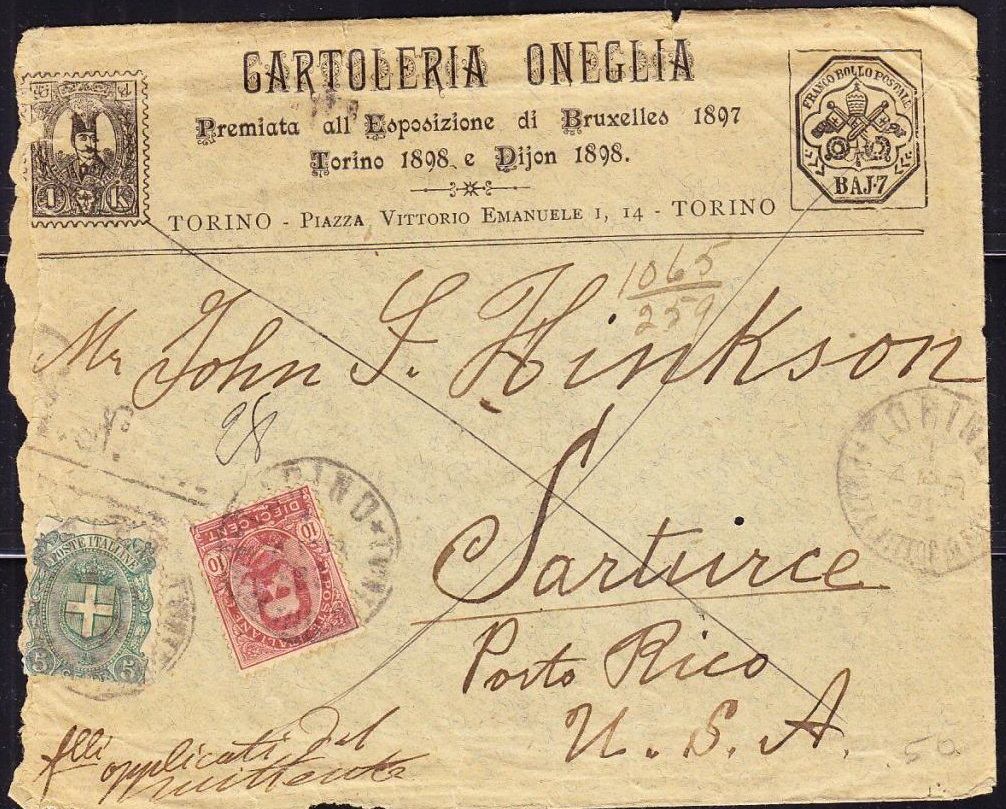 CARTOLERIA ONEGLIA
Premiata all'Esposizione di Bruxelles 1897
Torino 1898 e Dijon 1898.
TORINO - PIAZZA VITTORIO EMANUELE I, 14 - TORINO
1 K
FRANCO BOLLO POSTALE
BAJ·7
1065
259
Mr John S. Hinkson
28
Sarturce
Porto Rico
U. S. A.
TORINO
POSTE ITALIANE
5 5
DIECI CENT
10 10
POSTE ITALIANE
TORINO
flli applicati dal
mittente
50